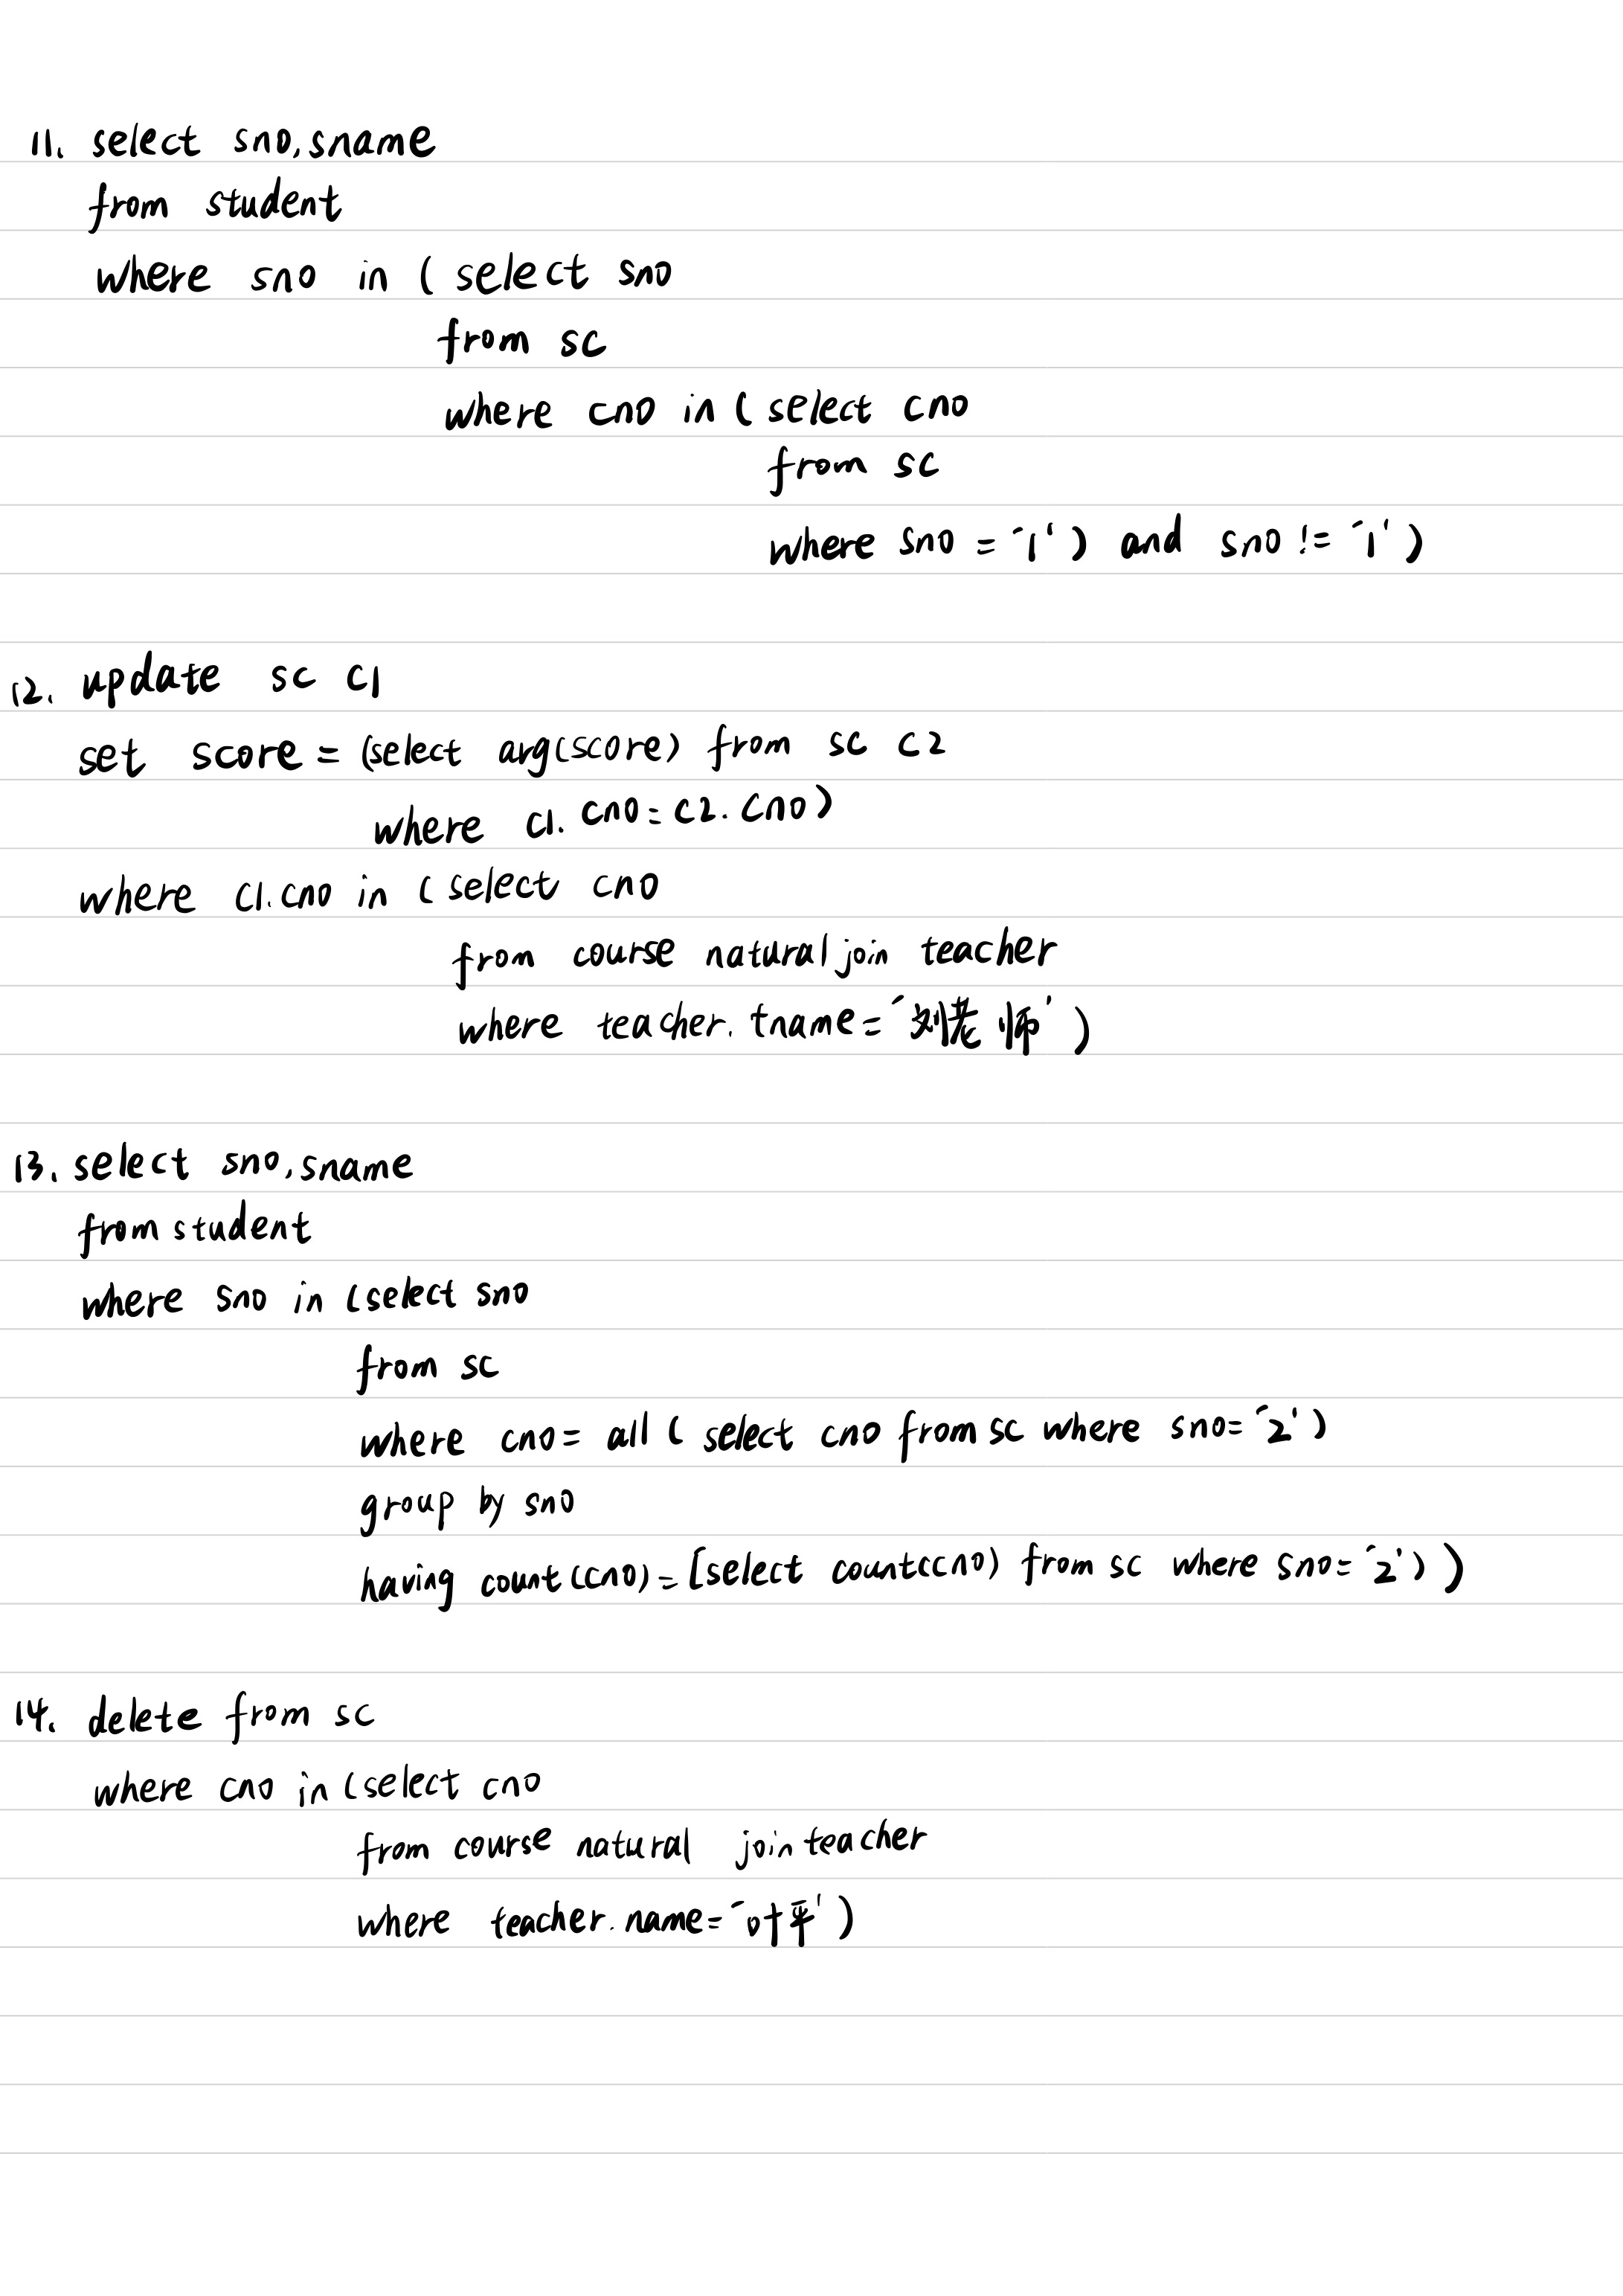 11. select sno, sname
from student
where sno in ( select sno
from sc
where cno in ( select cno
from sc
where sno = '1' ) and sno != '1' )
12. update sc c1
set score = (select arg(score) from sc c2
where c1. cno = c2. cno)
where c1. cno in ( select cno
from course natural join teacher
where teacher. tname = '刘老师' )
13. select sno, sname
from student
where sno in ( select sno
from sc
where cno = all ( select cno from sc where sno = '2' )
group by sno
having count (cno) = [select count(cno) from sc where sno = '2' ) )
14. delete from sc
where cno in ( select cno
from course natural join teacher
where teacher. name = '叶平' )